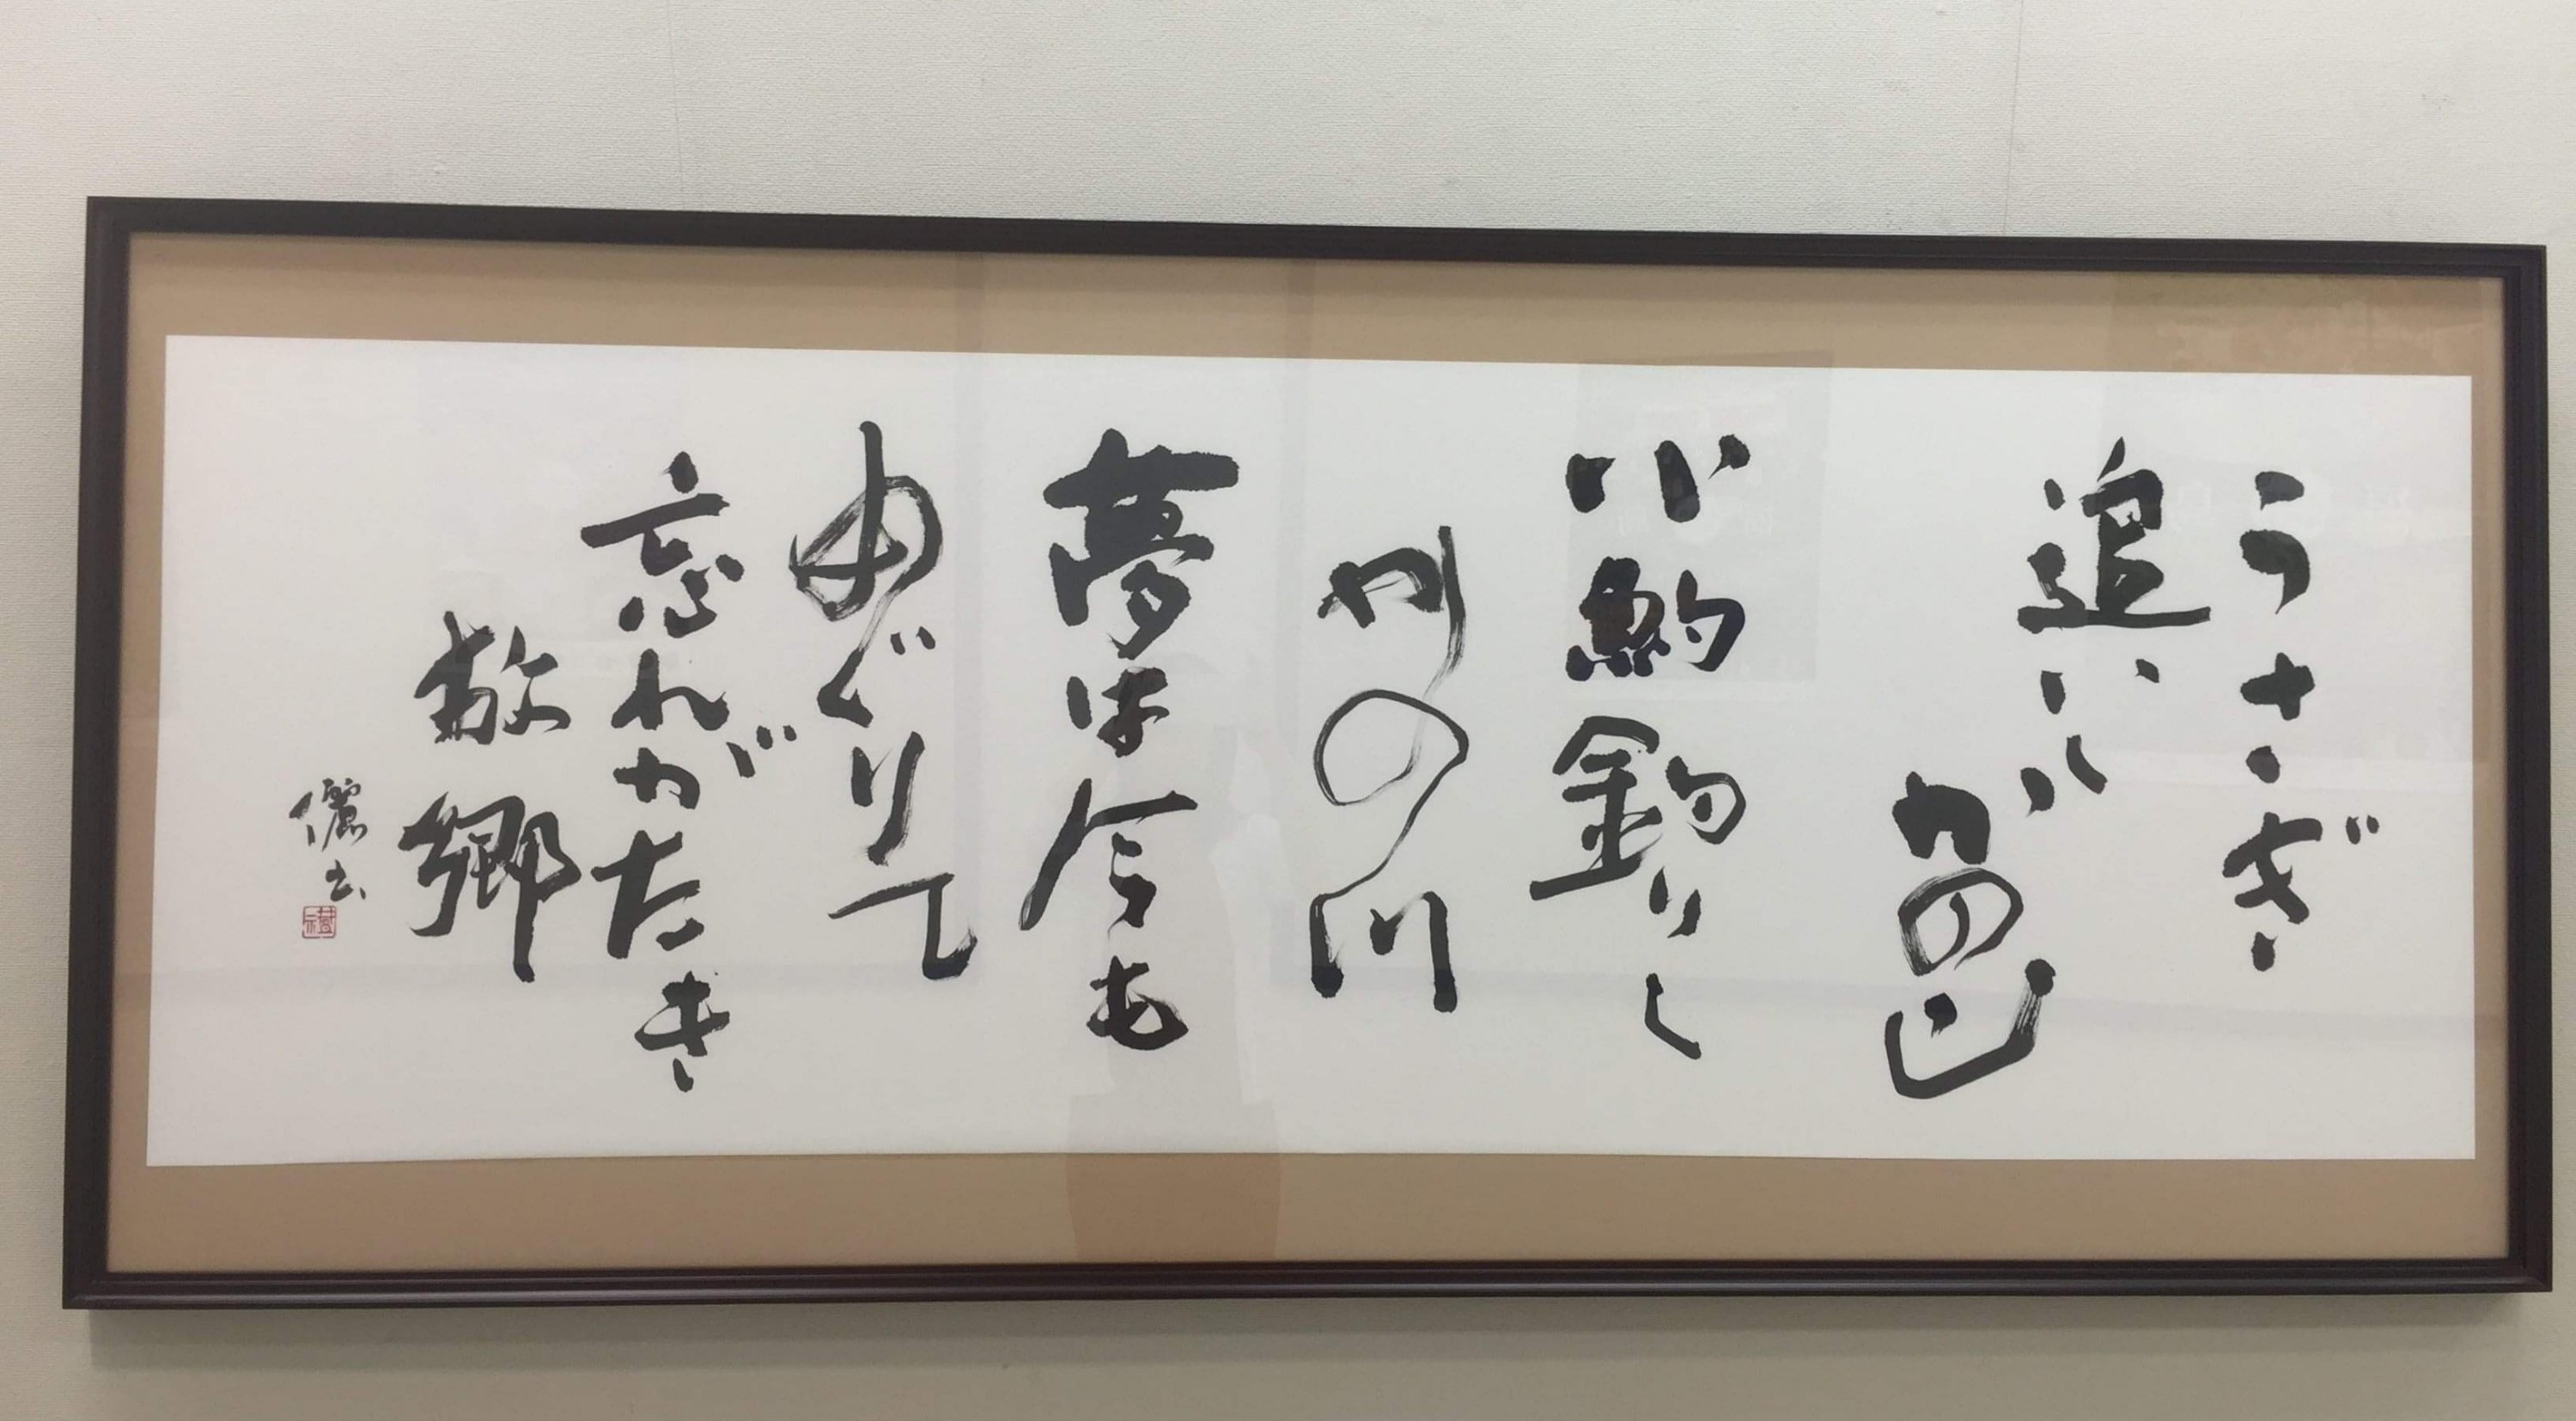 うさぎ
追いし
かの山
小鮒釣りし
かの川
夢は今も
めぐりて
忘れがたき
故郷